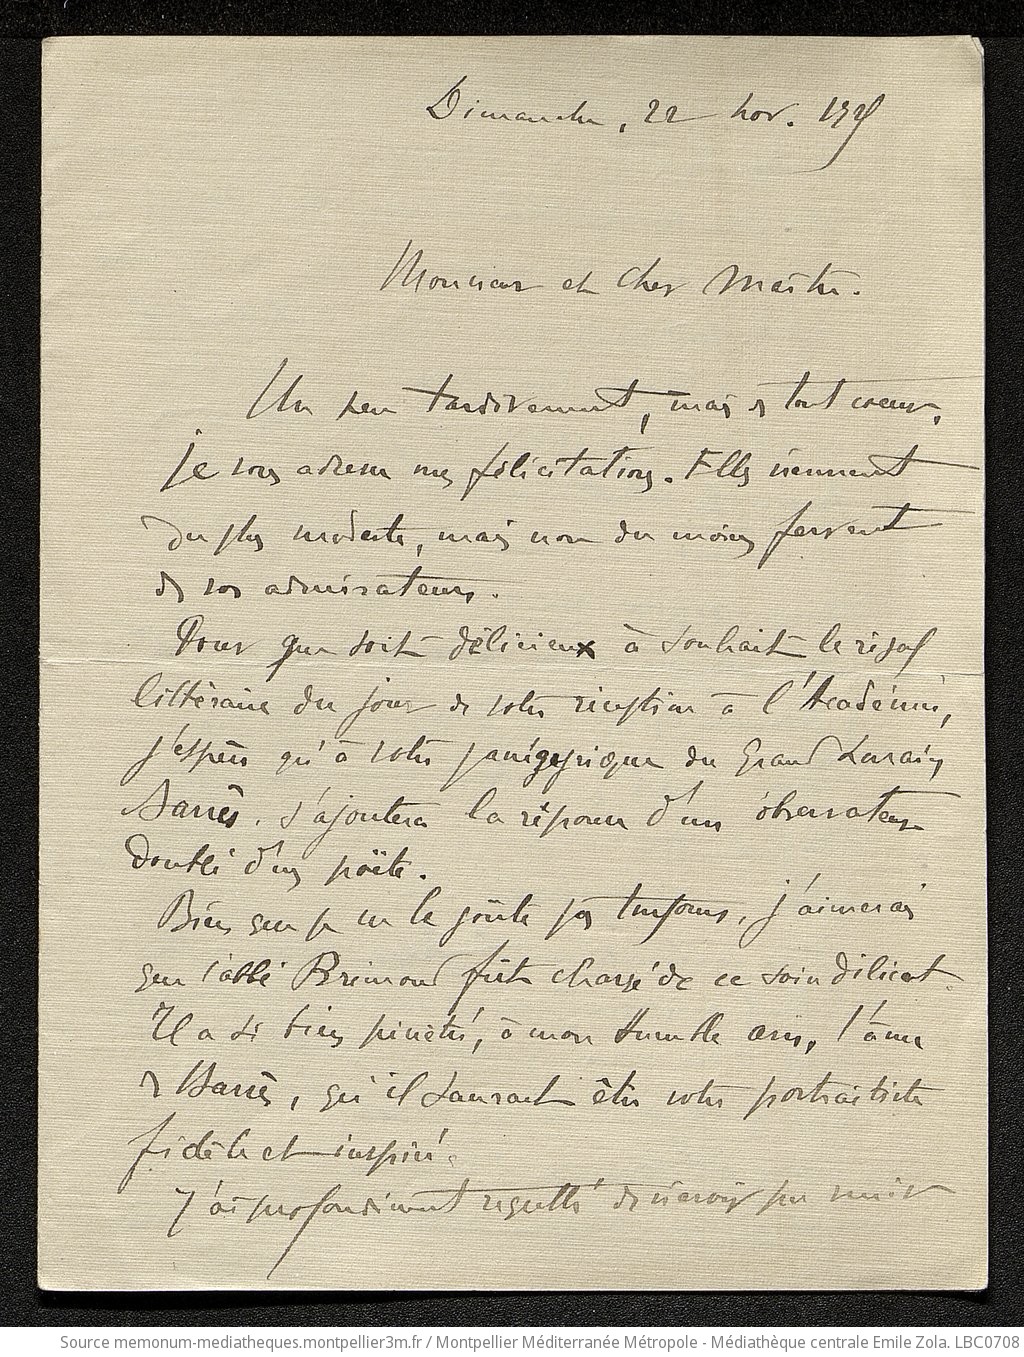 Dimanche, 22 nov. 1925
Monsieur et cher Maître.
Un peu tardivement, mais de tout coeur,
je vous adresse mes félicitations. Elles viennent
du plus modeste, mais non du moins fervent
de vos admirateurs.
Pour que soit délicieux à souhait le régal
littéraire du jour de votre réception à l'Académie,
j'espère qu'à votre panégyrique du Grand Lorrain
Barrès, s'ajoutera la réponse d'un observateur
doublé d'un poëte.
Bien que je ne le goûte pas toujours, j'aimerais
que l'abbé Bremond fût chargé de ce soin délicat.
Il a si bien pénétré, à mon humble avis, l'âme
de Barrès, qu'il saurait être votre portraitiste
fidèle et inspiré.
J'ai profondément regretté de n'avoir pu venir
Source memonum-mediatheques.montpellier3m.fr / Montpellier Méditerranée Métropole - Médiathèque centrale Emile Zola. LBC0708